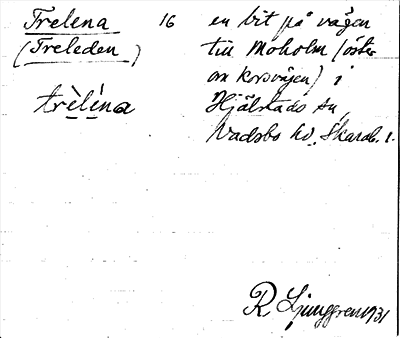 Trelena 16 en bit på vägen
(Treleden) till Moholm (öster
om korsvägen) i
trèlína Hjälstads sn,
Vadsbo hd, Skarab. l.
R Ljunggren 1931